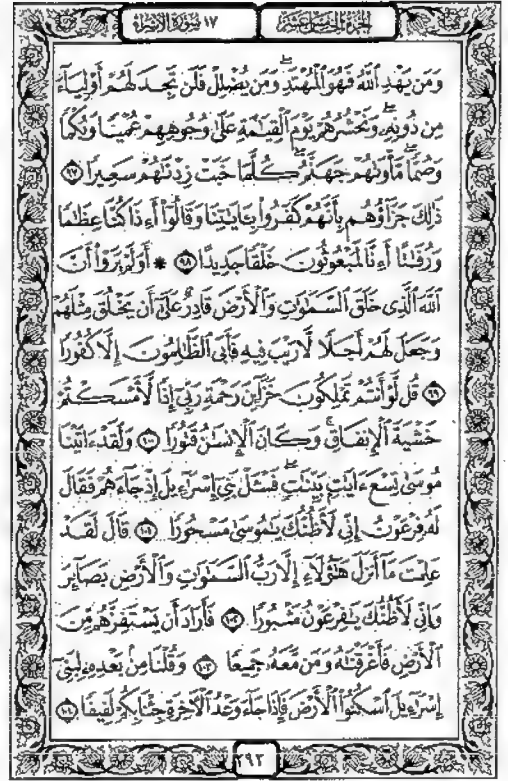 الجزء الخامس عشر
١٧ سورة الإسراء
وَمَن يَهْدِ ٱللَّهُ فَهُوَ ٱلْمُهْتَدِ ۖ وَمَن يُضْلِلْ فَلَن تَجِدَ لَهُمْ أَوْلِيَآءَ
مِن دُونِهِۦ ۖ وَنَحْشُرُهُمْ يَوْمَ ٱلْقِيَٰمَةِ عَلَىٰ وُجُوهِهِمْ عُمْيًا وَبُكْمًا
وَصُمًّا ۖ مَّأْوَىٰهُمْ جَهَنَّمُ ۖ كُلَّمَا خَبَتْ زِدْنَٰهُمْ سَعِيرًا ٩٧
ذَٰلِكَ جَزَآؤُهُم بِأَنَّهُمْ كَفَرُوا۟ بِـَٔايَٰتِنَا وَقَالُوٓا۟ أَءِذَا كُنَّا عِظَٰمًا
وَرُفَٰتًا أَءِنَّا لَمَبْعُوثُونَ خَلْقًا جَدِيدًا ٩٨ * أَوَلَمْ يَرَوْا۟ أَنَّ
ٱللَّهَ ٱلَّذِى خَلَقَ ٱلسَّمَٰوَٰتِ وَٱلْأَرْضَ قَادِرٌ عَلَىٰٓ أَن يَخْلُقَ مِثْلَهُمْ
وَجَعَلَ لَهُمْ أَجَلًا لَّا رَيْبَ فِيهِ فَأَبَى ٱلظَّٰلِمُونَ إِلَّا كُفُورًا
٩٩ قُل لَّوْ أَنتُمْ تَمْلِكُونَ خَزَآئِنَ رَحْمَةِ رَبِّىٓ إِذًا لَّأَمْسَكْتُمْ
خَشْيَةَ ٱلْإِنفَاقِ ۚ وَكَانَ ٱلْإِنسَٰنُ قَتُورًا ١٠٠ وَلَقَدْ ءَاتَيْنَا
مُوسَىٰ تِسْعَ ءَايَٰتٍۭ بَيِّنَٰتٍ ۖ فَسْـَٔلْ بَنِىٓ إِسْرَٰٓءِيلَ إِذْ جَآءَهُمْ فَقَالَ
لَهُۥ فِرْعَوْنُ إِنِّى لَأَظُنُّكَ يَٰمُوسَىٰ مَسْحُورًا ١٠١ قَالَ لَقَدْ
عَلِمْتَ مَآ أَنزَلَ هَٰٓؤُلَآءِ إِلَّا رَبُّ ٱلسَّمَٰوَٰتِ وَٱلْأَرْضِ بَصَآئِرَ
وَإِنِّى لَأَظُنُّكَ يَٰفِرْعَوْنُ مَثْبُورًا ١٠٢ فَأَرَادَ أَن يَسْتَفِزَّهُم مِّنَ
ٱلْأَرْضِ فَأَغْرَقْنَٰهُ وَمَن مَّعَهُۥ جَمِيعًا ١٠٣ وَقُلْنَا مِنۢ بَعْدِهِۦ لِبَنِىٓ
إِسْرَٰٓءِيلَ ٱسْكُنُوا۟ ٱلْأَرْضَ فَإِذَا جَآءَ وَعْدُ ٱلْـَٔاخِرَةِ جِئْنَا بِكُمْ لَفِيفًا ١٠٤
٢٩٢